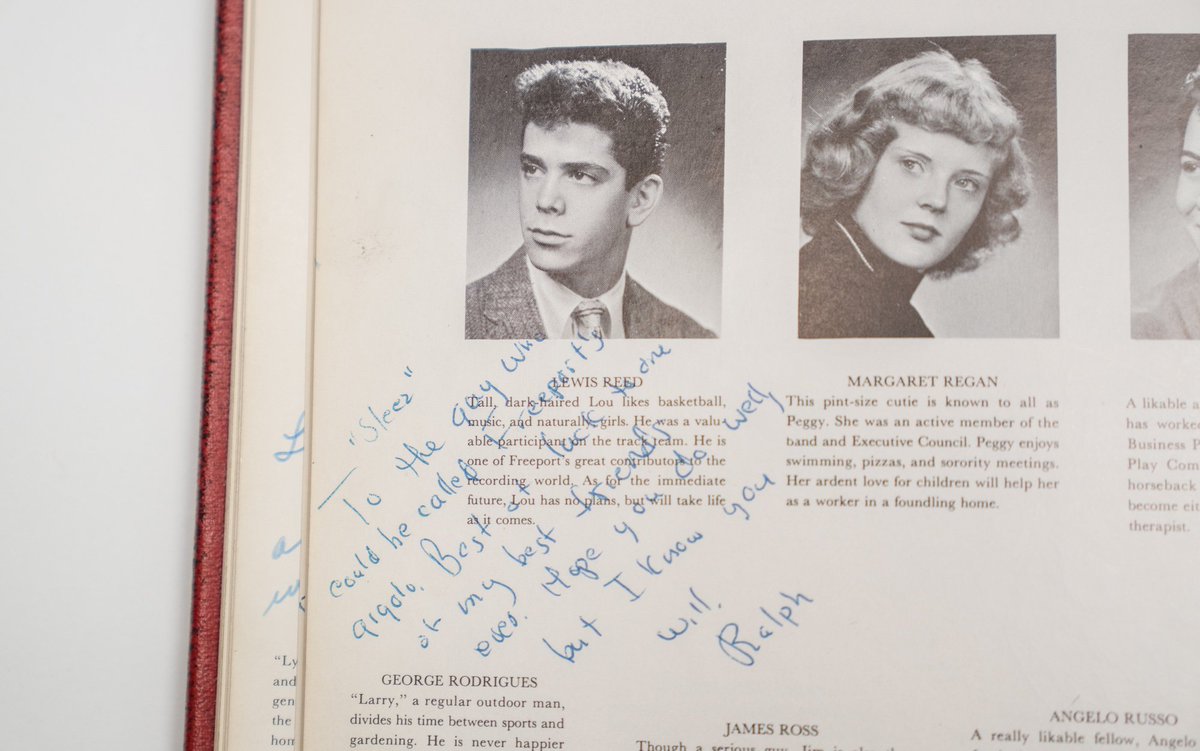 LEWIS REED
Tall, dark-haired Lou likes basketball,
music, and naturally, girls. He was a valu-
able participant on the track team. He is
one of Freeport's great contributors to the
recording world. As for the immediate
future, Lou has no plans, but will take life
as it comes.
MARGARET REGAN
This pint-size cutie is known to all as
Peggy. She was an active member of the
band and Executive Council. Peggy enjoys
swimming, pizzas, and sorority meetings.
Her ardent love for children will help her
as a worker in a foundling home.
A likable a
has worked
Business P
Play Com
horseback
become eit
therapist.
To the guy who
could be called Freeport's
gigolo. Best of luck to one
of my best friends
Hope you do well,
but I know you
will.
Ralph
"Ly
and
gen
the
hom
GEORGE RODRIGUES
"Larry," a regular outdoor man,
divides his time between sports and
gardening. He is never happier
JAMES ROSS
Though a serious guy, Jim is
ANGELO RUSSO
A really likable fellow, Angelo